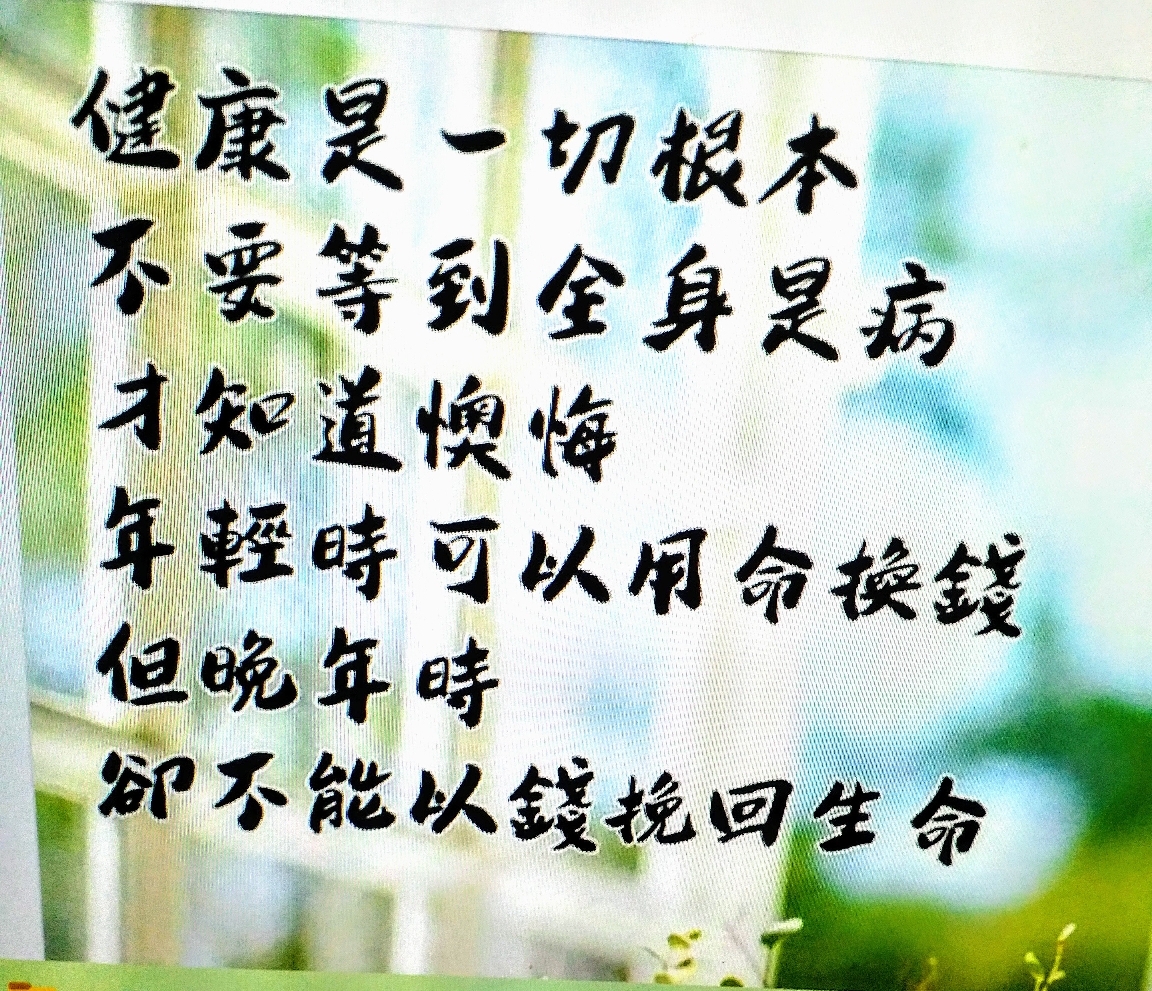 健康是一切根本
不要等到全身是病
才知道懊悔
年輕時可以用命換錢
但晚年時
卻不能以錢挽回生命